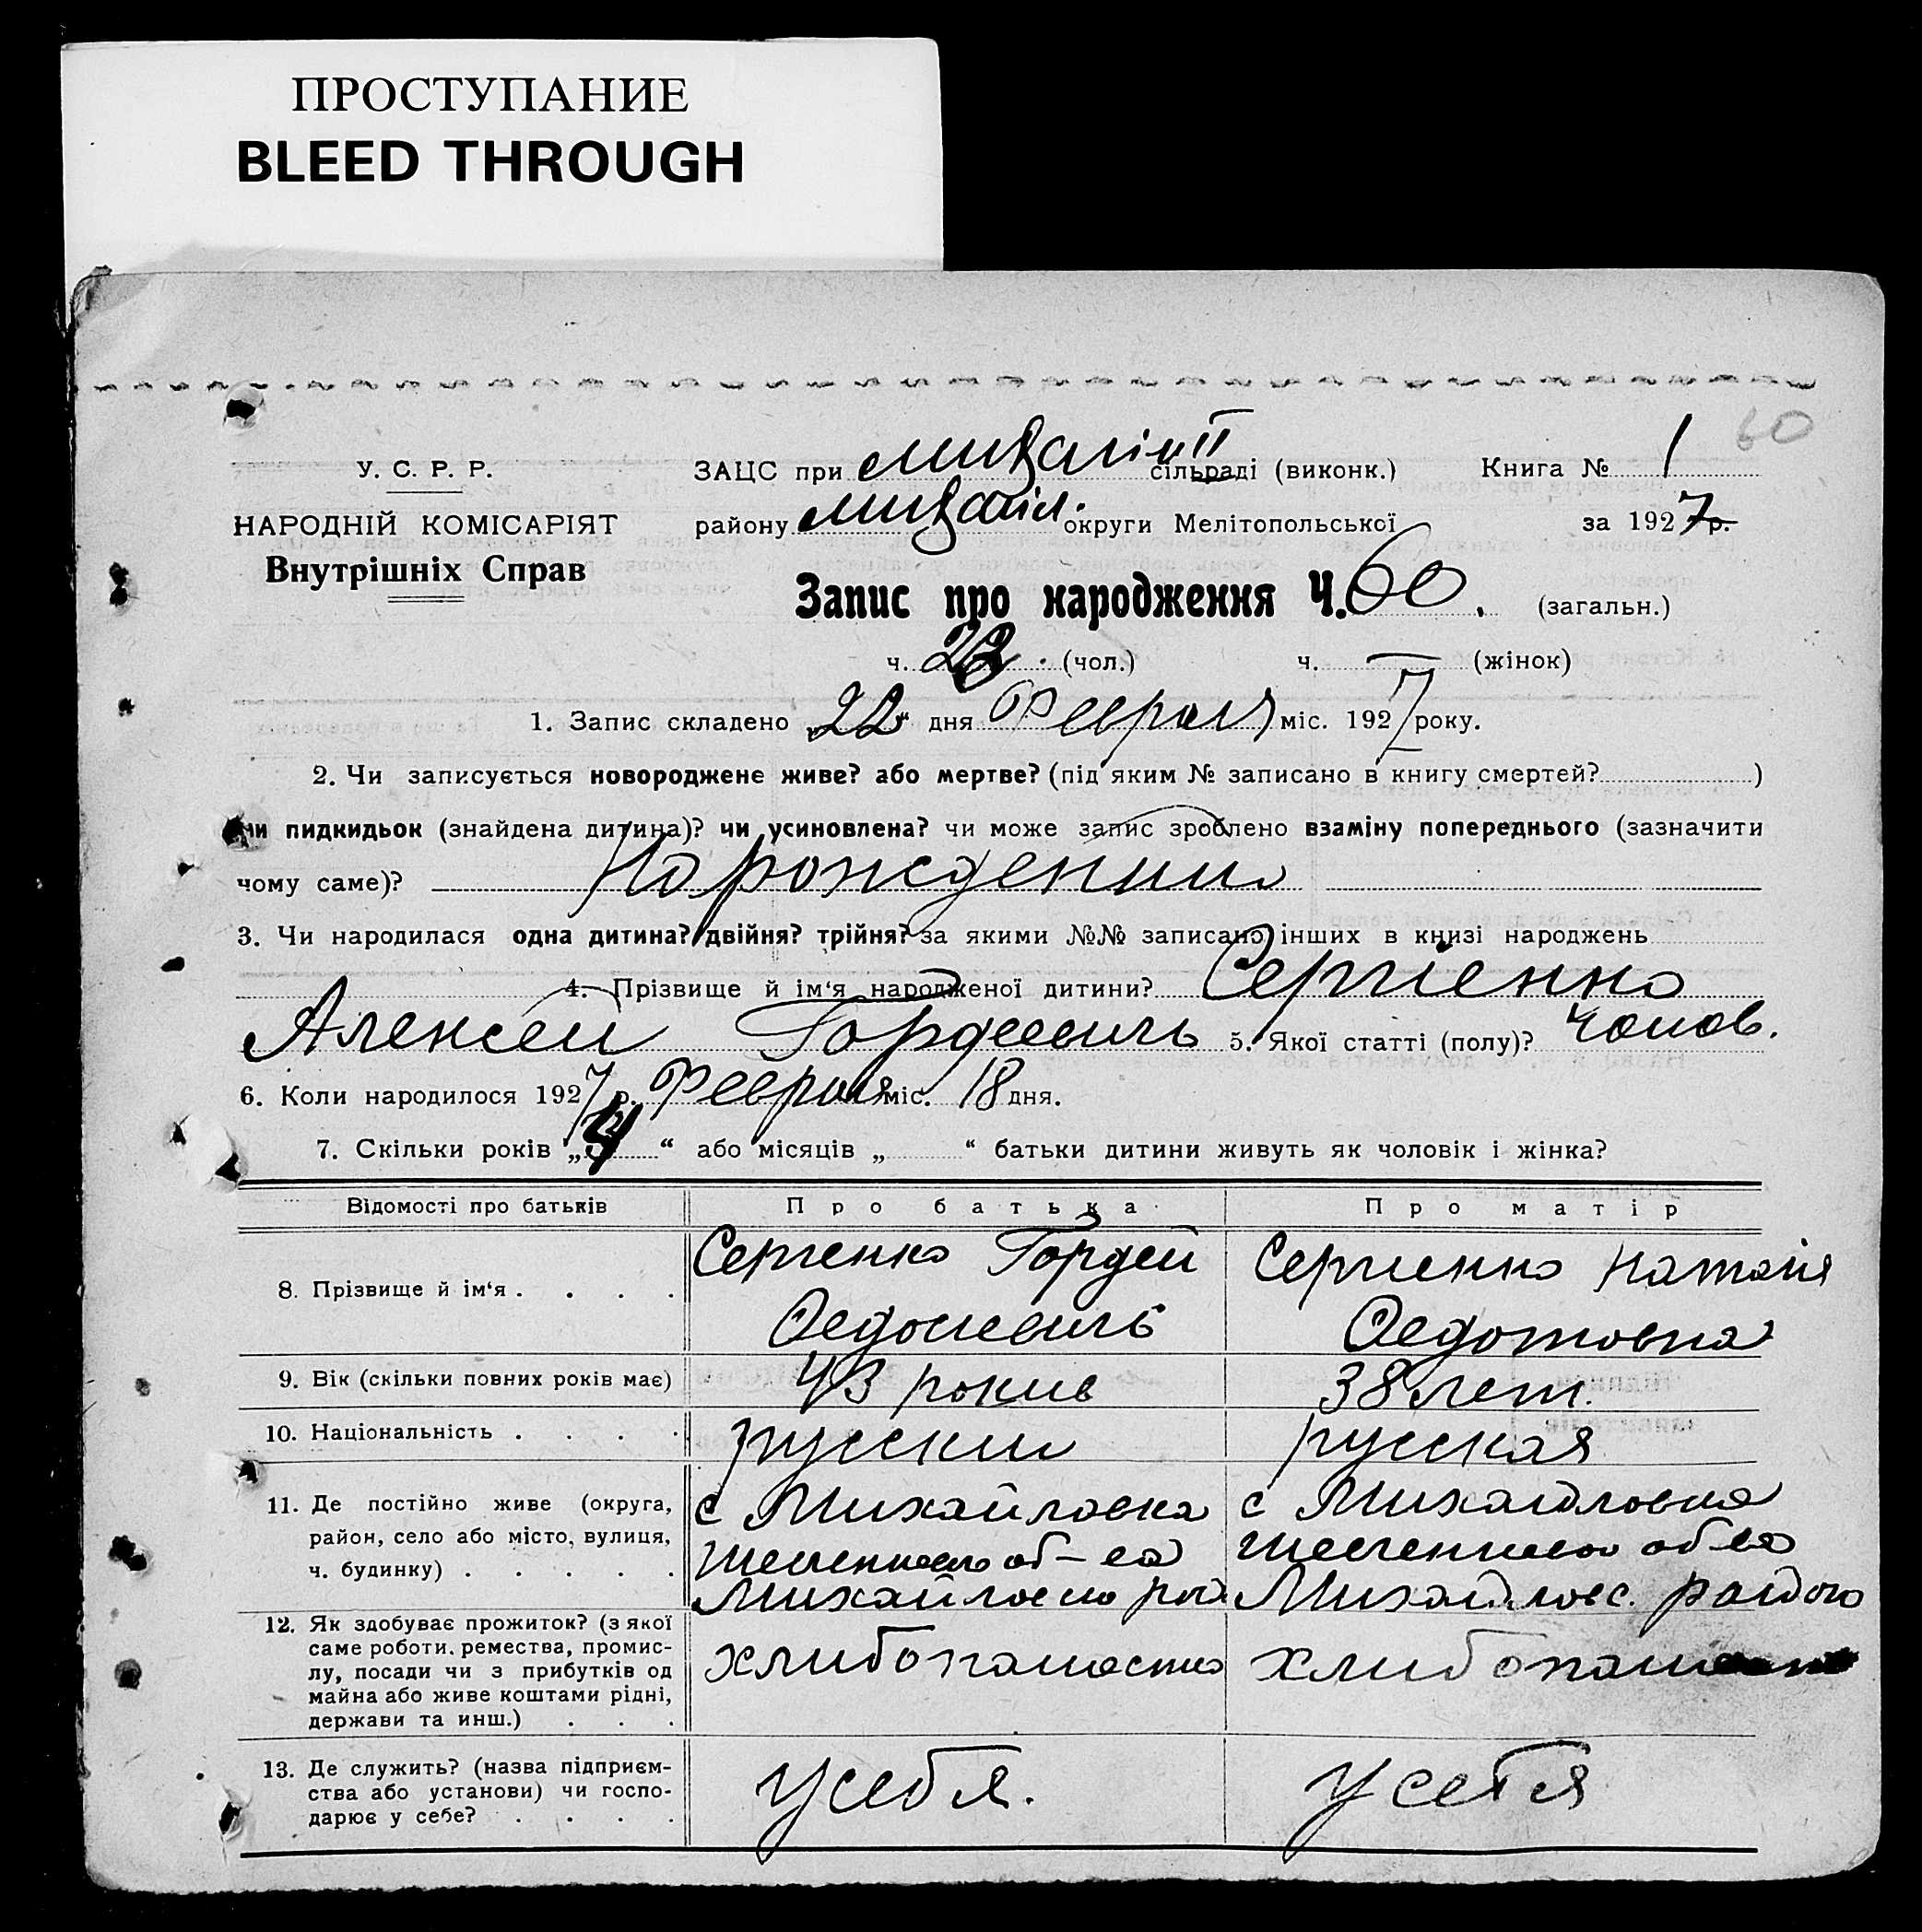 ПРОСТУПАНИЕ
BLEED THROUGH
60
У. С. Р. Р.
НАРОДНІЙ КОМІСАРІЯТ
Внутрішніх Справ
ЗАЦС при сільраді (виконк.) Книга № 1
району Михайл. округи Мелітопольської за 1927 р.
Запис про народження Ч. 60. (загальн.)
ч. 23 (чол.) ч. — (жінок)
1. Запис складено „22“ дня Февраля міс. 1927 року.
2. Чи записується новороджене живе? або мертве? (під яким № записано в книгу смертей? )
чи пидкидьок (знайдена дитина)? чи усиновлена? чи може запис зроблено взаміну попереднього (зазначити
чому саме)?
3. Чи народилася одна дитина? двійня? трійня? за якими №№ записано інших в книзі народжень
4. Прізвище й ім‘я народженої дитини? Сергиенко
Алексей Гордеевичь 5. Якої статті (полу)? Чолов.
6. Коли народилося 1927 р. Февраля міс. 18 дня.
7. Скільки років „ “ або місяців „ “ батьки дитини живуть як чоловік і жінка?
Відомості про батьків Про батька Про матір
8. Прізвище й ім‘я . . . . Сергенко Гордей Сергиенко Наталія
Федотовна
9. Вік (скільки повних років має) 43 рокив 38 лет.
10. Національність . . . . русский русская
11. Де постійно живе (округа, с Михайловка с Михайловка
район, село або місто, вулиця,
ч. будинку) . . . . . Михайловс. района
12. Як здобуває прожиток? (з якої
саме роботи, ремества, промис-
лу, посади чи з прибутків од хлибопашество
майна або живе коштами рідні,
держави та инш.) . . .
13. Де служить? (назва підприєм-
ства або установи) чи госпо- у себя. у себя
дарює у себе? . . . .